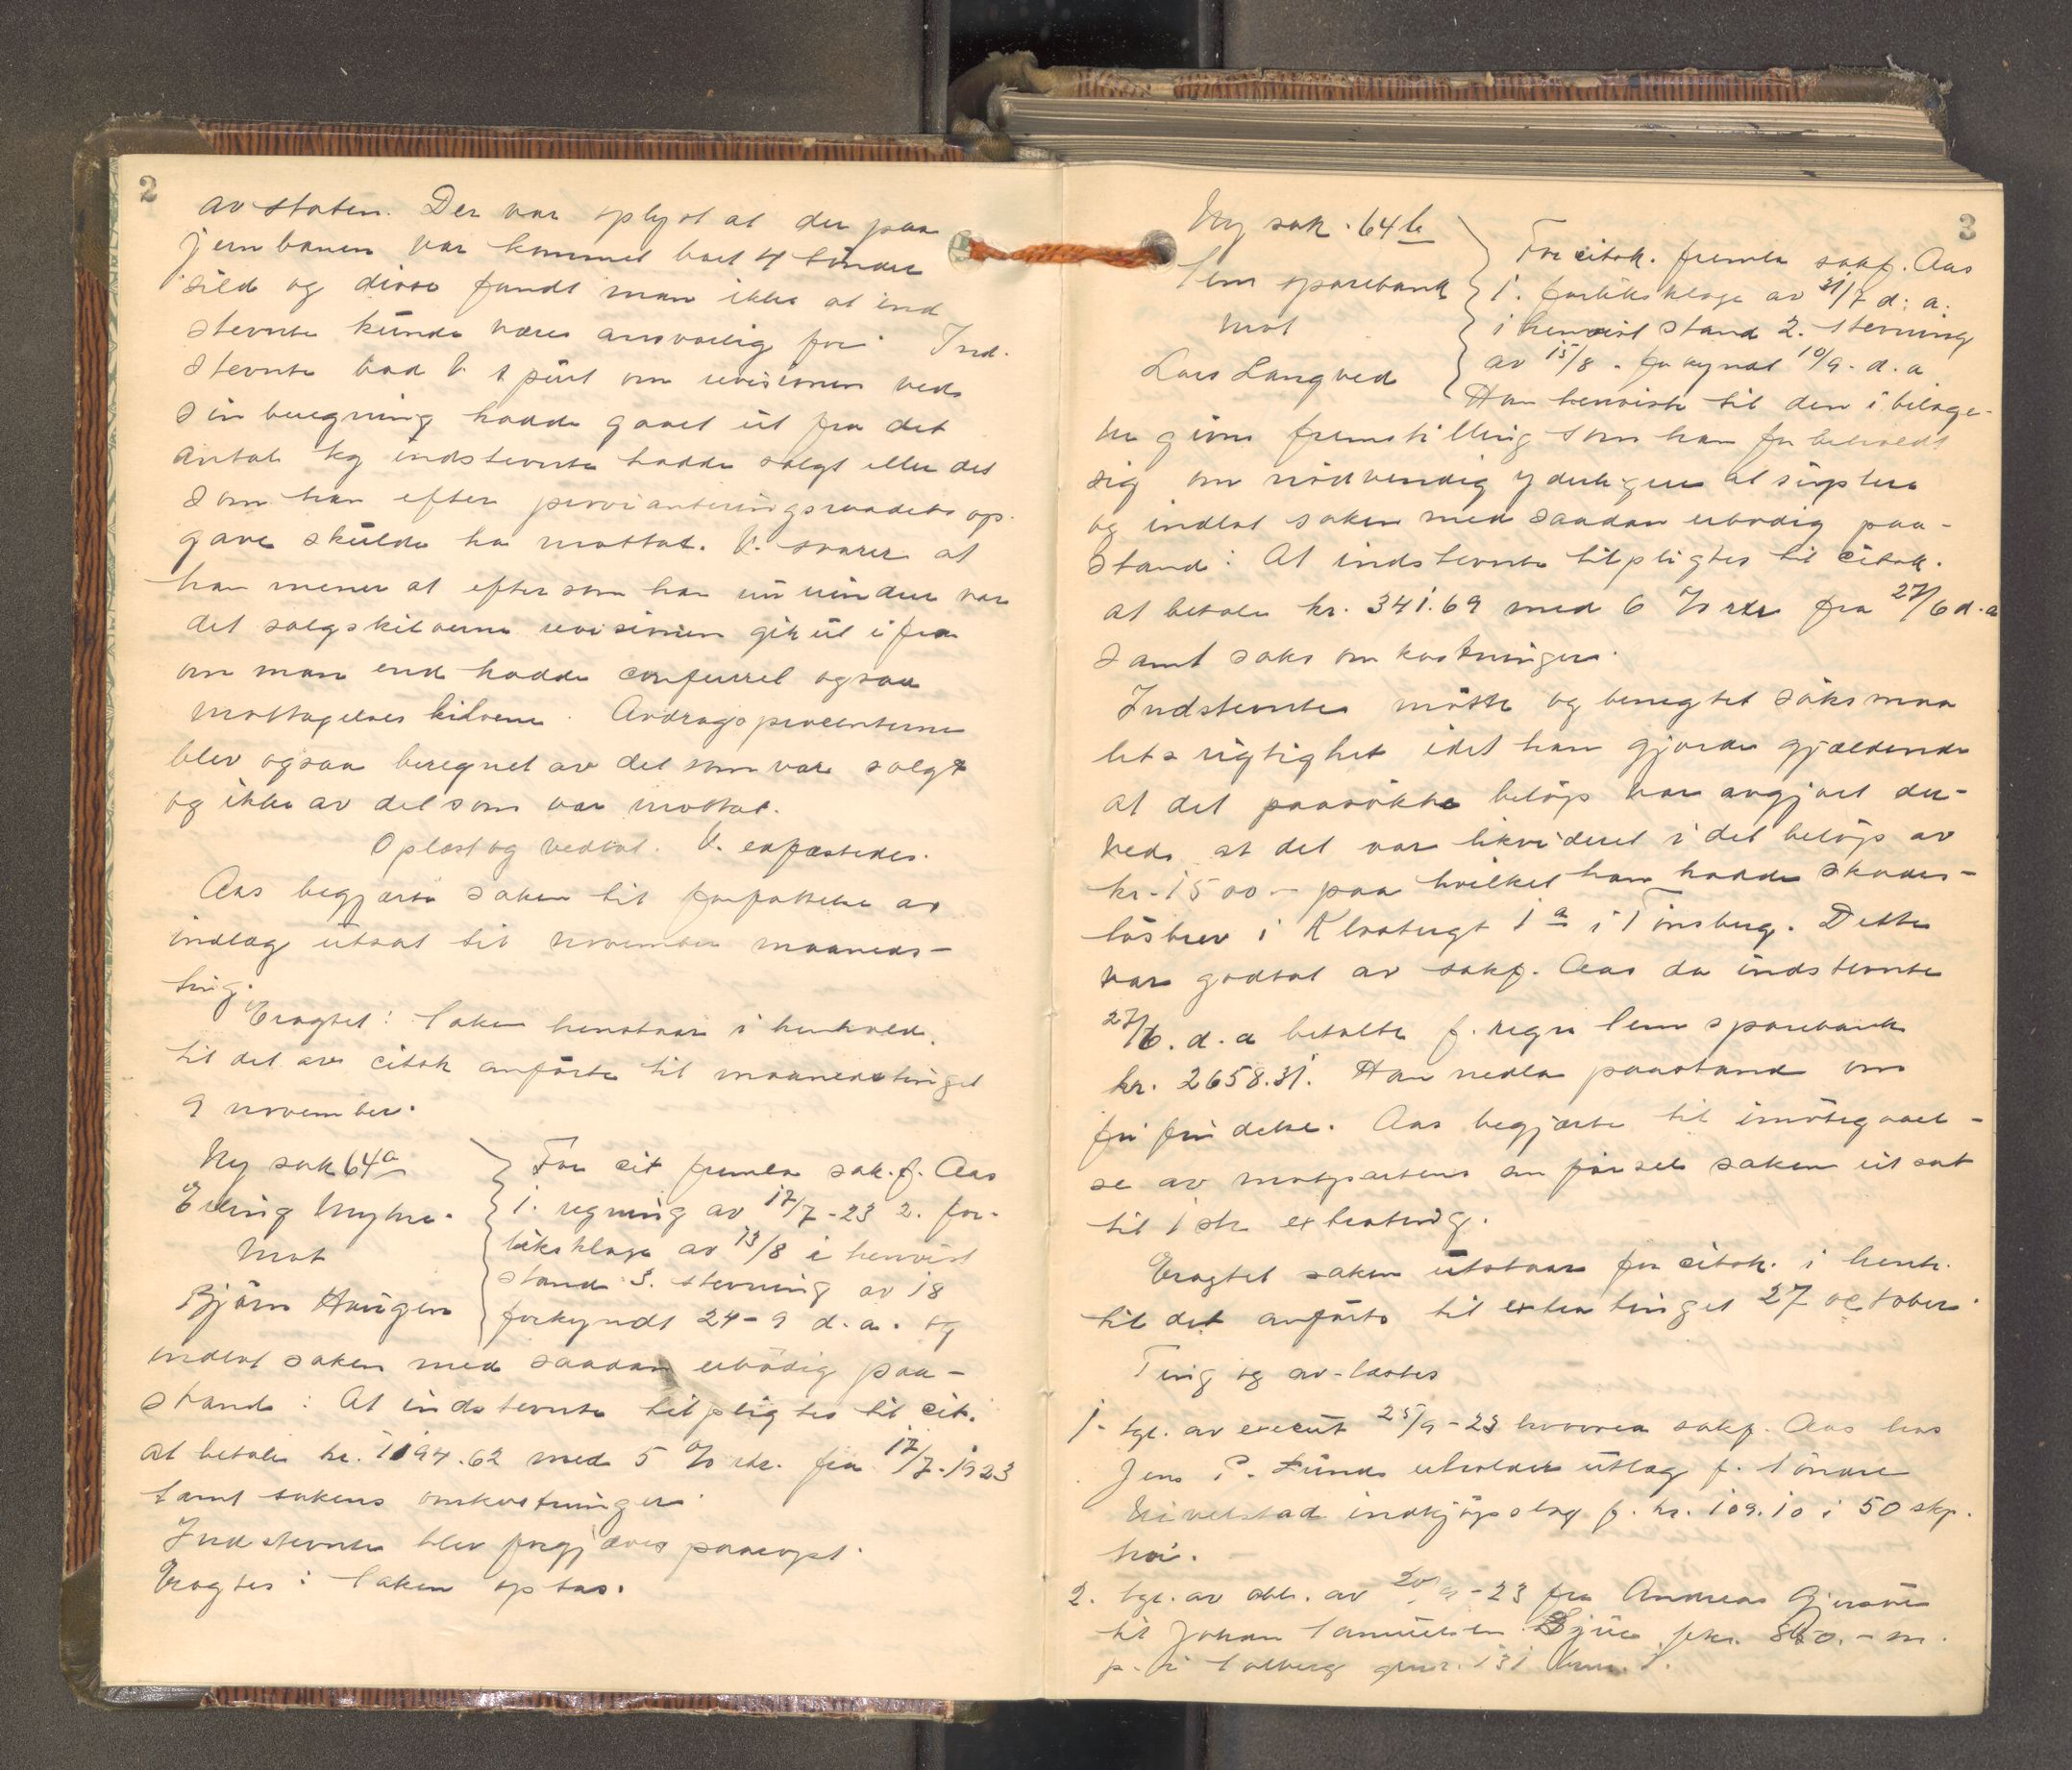 2
av staten. Der var oplyst at der paa
jernbanen var kommet bort 4 tönder
sild og disse fandt man ikke at ind
stevnte kunde være ansvarlig for. Ind.
stevnte bad V. spurt om revisionen ved
sin beregning hadde gaaet ut fra det
antal kg indstevnte hadde solgt eller det
som han efter provianteringsraadets op-
gave skulde ha mottat. V. svarer at
han mener at eftersom han nu minder var
det salgskiloerne revisionen gik ut ifra
om man end hadde conferert ogsaa
mottagelses kiloene. Avdragsprocenterne
blev ogsaa beregnet av det som var solgt
og ikke av det som var mottat.
Oplæst og vedtat. V.
Aas begjærte saken til forfattelse av
indlæg utsat til november maaneds-
ting.
Eragtet: Saken henstaar i henhold
til det av citok anförte til maanedstinget
9 november.
Ny sak 64a
Erling Myhre.
mot
Björn Haugen
For cit fremla sak.f. Aas
1. regning av 17/7-23 2. for-
liksklage av 13/8 i henvist
stand 3. stevning av 18
forkyndt 24-9 d.a. og
indlot saken med saadan erbödig paa-
stand: At indstevnte tilpligtes til cit.
at betale kr. 1194.62 med 5 % rtr. fra 17/7-1923
samt sakens omkostninger.
Indstevnte blev forgjæves paaropt.
Eragtes: Saken optas.
3
Ny sak. 64b
Sem sparebank
mot
Lars Langved
For citok. fremla sakf. Aas
1. forliksklage av 31/7 d: a:
i henvist stand 2. stevning
av 15/8. forkyndt 10/9. d. a.
Han henviste til den i bilage-
ne givne fremstilling som han forbeholdt
sig om nödvendig yderligere at suplere
og indlot saken med saadan erbödig paa-
stand: At indstevnte tilpligtes til citok.
at betale kr. 341.69 med 6 % rtr fra 27/6 d.a
samt saks omkostninger.
Indstevnte mötte og benegtet söksmaa
lets rigtighet idet han gjorde gjældende
at det paasökte belöp var avgjort der-
ved at det var likvideret i det belöp av
kr. 1500- paa hvilket han hadde skades-
lösbrev i Klostergt 1a i Tönsberg. Dette
var godtat av sakf. Aas da indstevnte
27/6. d.a betalte f. regn Sem sparebank
kr. 2658.31. Han nedla paastand om
frifindelse. Aas begjærte til imötegaael-
se av motpartens anförsel saken utsat
til 1ste extrating.
Eragtet saken utstaar for citok. i henh.
til det anförte til extratinget 27 october.
Ting og av-læstes
1. tgl. av execut 25/9-23 hvorved sakf. Aas hos
Jens P. Lunde erholder utlæg f. Söndre
indkjöpslag f. kr. 109.10 i 50 skp.
höi.
2. tgl. av obl. av 20/9-23 fra Andreas Gjersöe
til Johan Samuelsen fkr. 850.- m.
p. i Solberg gnr. 131 bnr. 1.